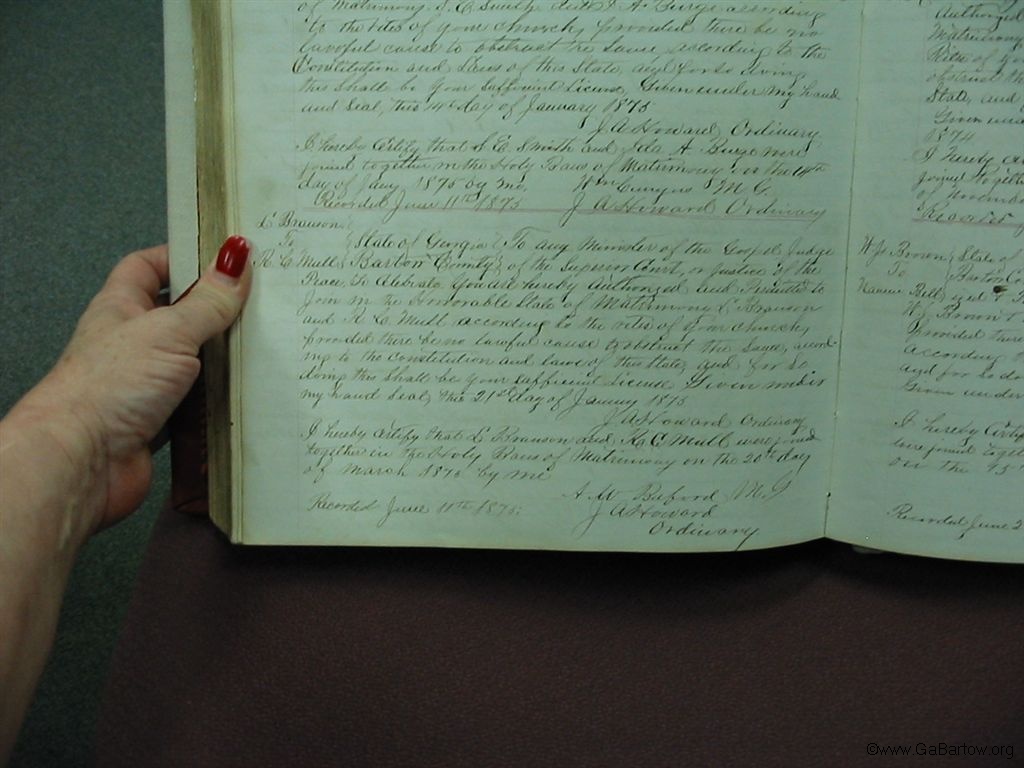 of Matrimony S. E. Smith and I. A. Burge according
to the rites of your church, provided there be no
lawful cause to obstruct the same according to the
Constitution and Laws of this State, and for so doing
this shall be your sufficient License, Given under my hand
and Seal, this 14th day of January 1875
J A Howard, Ordinary
I hereby certify that S E Smith and Ida A. Burge were
joined together in the Holy Bans of Matrimony on the 14th
day of Jany 1875 by me, Wm M. G.
Recorded June 11th 1875 J A Howard Ordinary
L Branson
To State of Georgia To any Minister of the Gospel, Judge
R. C Mull Bartow County of the Superior Court, or Justice of the
Peace, To Celebrate You are hereby Authorized and Permitted to
Join in the Honorable State of Matrimony L Branson
and R C Mull according to the rites of your church,
provided there be no lawful cause to obstruct the same, accord-
ing to the constitution and laws of this State, and for so
doing this shall be your sufficient License Given under
my hand Seal, this 21st day of January 1875
J A Howard Ordinary
I hereby certify that L Branson and R C Mull were joined
together in the Holy Bans of Matrimony on the 20th day
of March 1875 by me
A. W Buford M G
Recorded June 11th 1875. J A Howard
Ordinary
Authorized
Matrimony
Rites of yo
obstruct th
State, and
Given und
1874
I hereby cer
joined togeth
of
Recorded
W J. Brown State of
To Bartow Co
Nannie Bell
W J Brown
provided there
according
and for so do
Given under
I hereby Certif
were joined toget
on the 15
Recorded June 2
©www.GaBartow.org